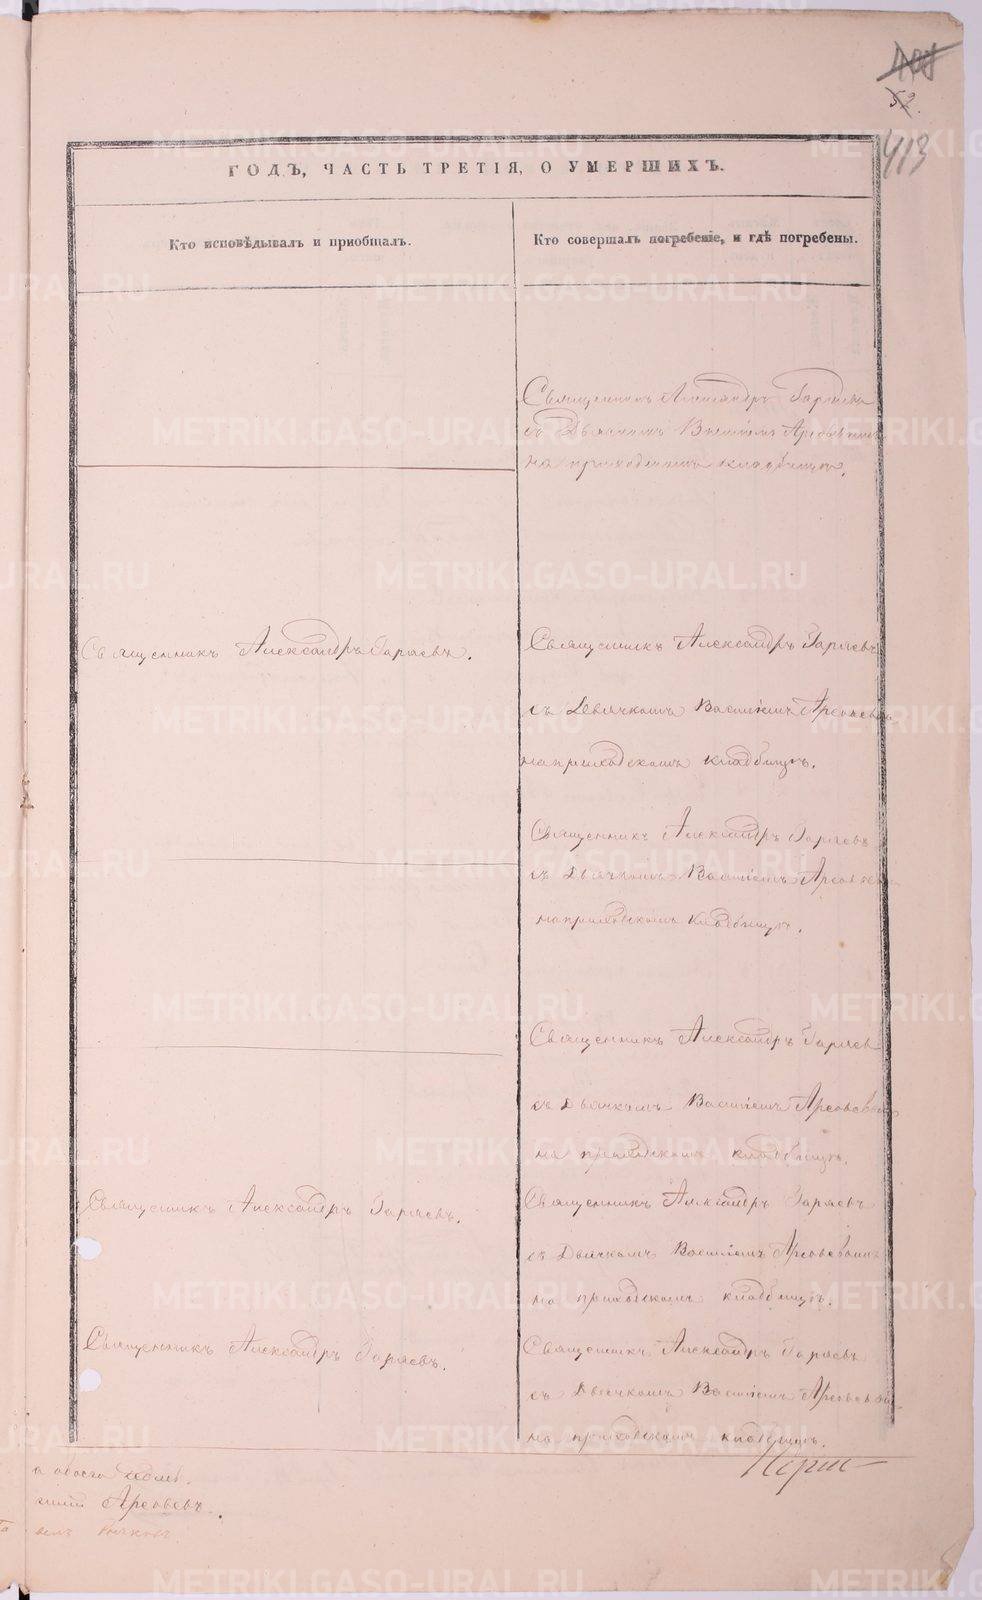 52.
413
ГОДЪ, ЧАСТЬ ТРЕТІЯ, О УМЕРШИХЪ.
Кто исповѣдывалъ и пріобщалъ.
Кто совершалъ погребеніе, и гдѣ погребены.
Священникъ Александръ Гаряевъ
съ Дьячкомъ Василіемъ
на приходскомъ кладбищѣ.
Священникъ Александръ Гаряевъ.
Священникъ Александръ Гаряевъ
съ Дьячкомъ Василіемъ
на приходскомъ кладбищѣ.
Священникъ Александръ Гаряевъ
съ Дьячкомъ Василіемъ
на приходскомъ кладбищѣ.
Священникъ Александръ Гаряевъ
съ Дьячкомъ Василіемъ
на приходскомъ кладбищѣ.
Священникъ Александръ Гаряевъ.
Священникъ Александръ Гаряевъ
съ Дьячкомъ Василіемъ
на приходскомъ кладбищѣ.
Священникъ Александръ Гаряевъ.
Священникъ Александръ Гаряевъ
съ Дьячкомъ Василіемъ
на приходскомъ кладбищѣ.
METRIKI.GASO-URAL.RU